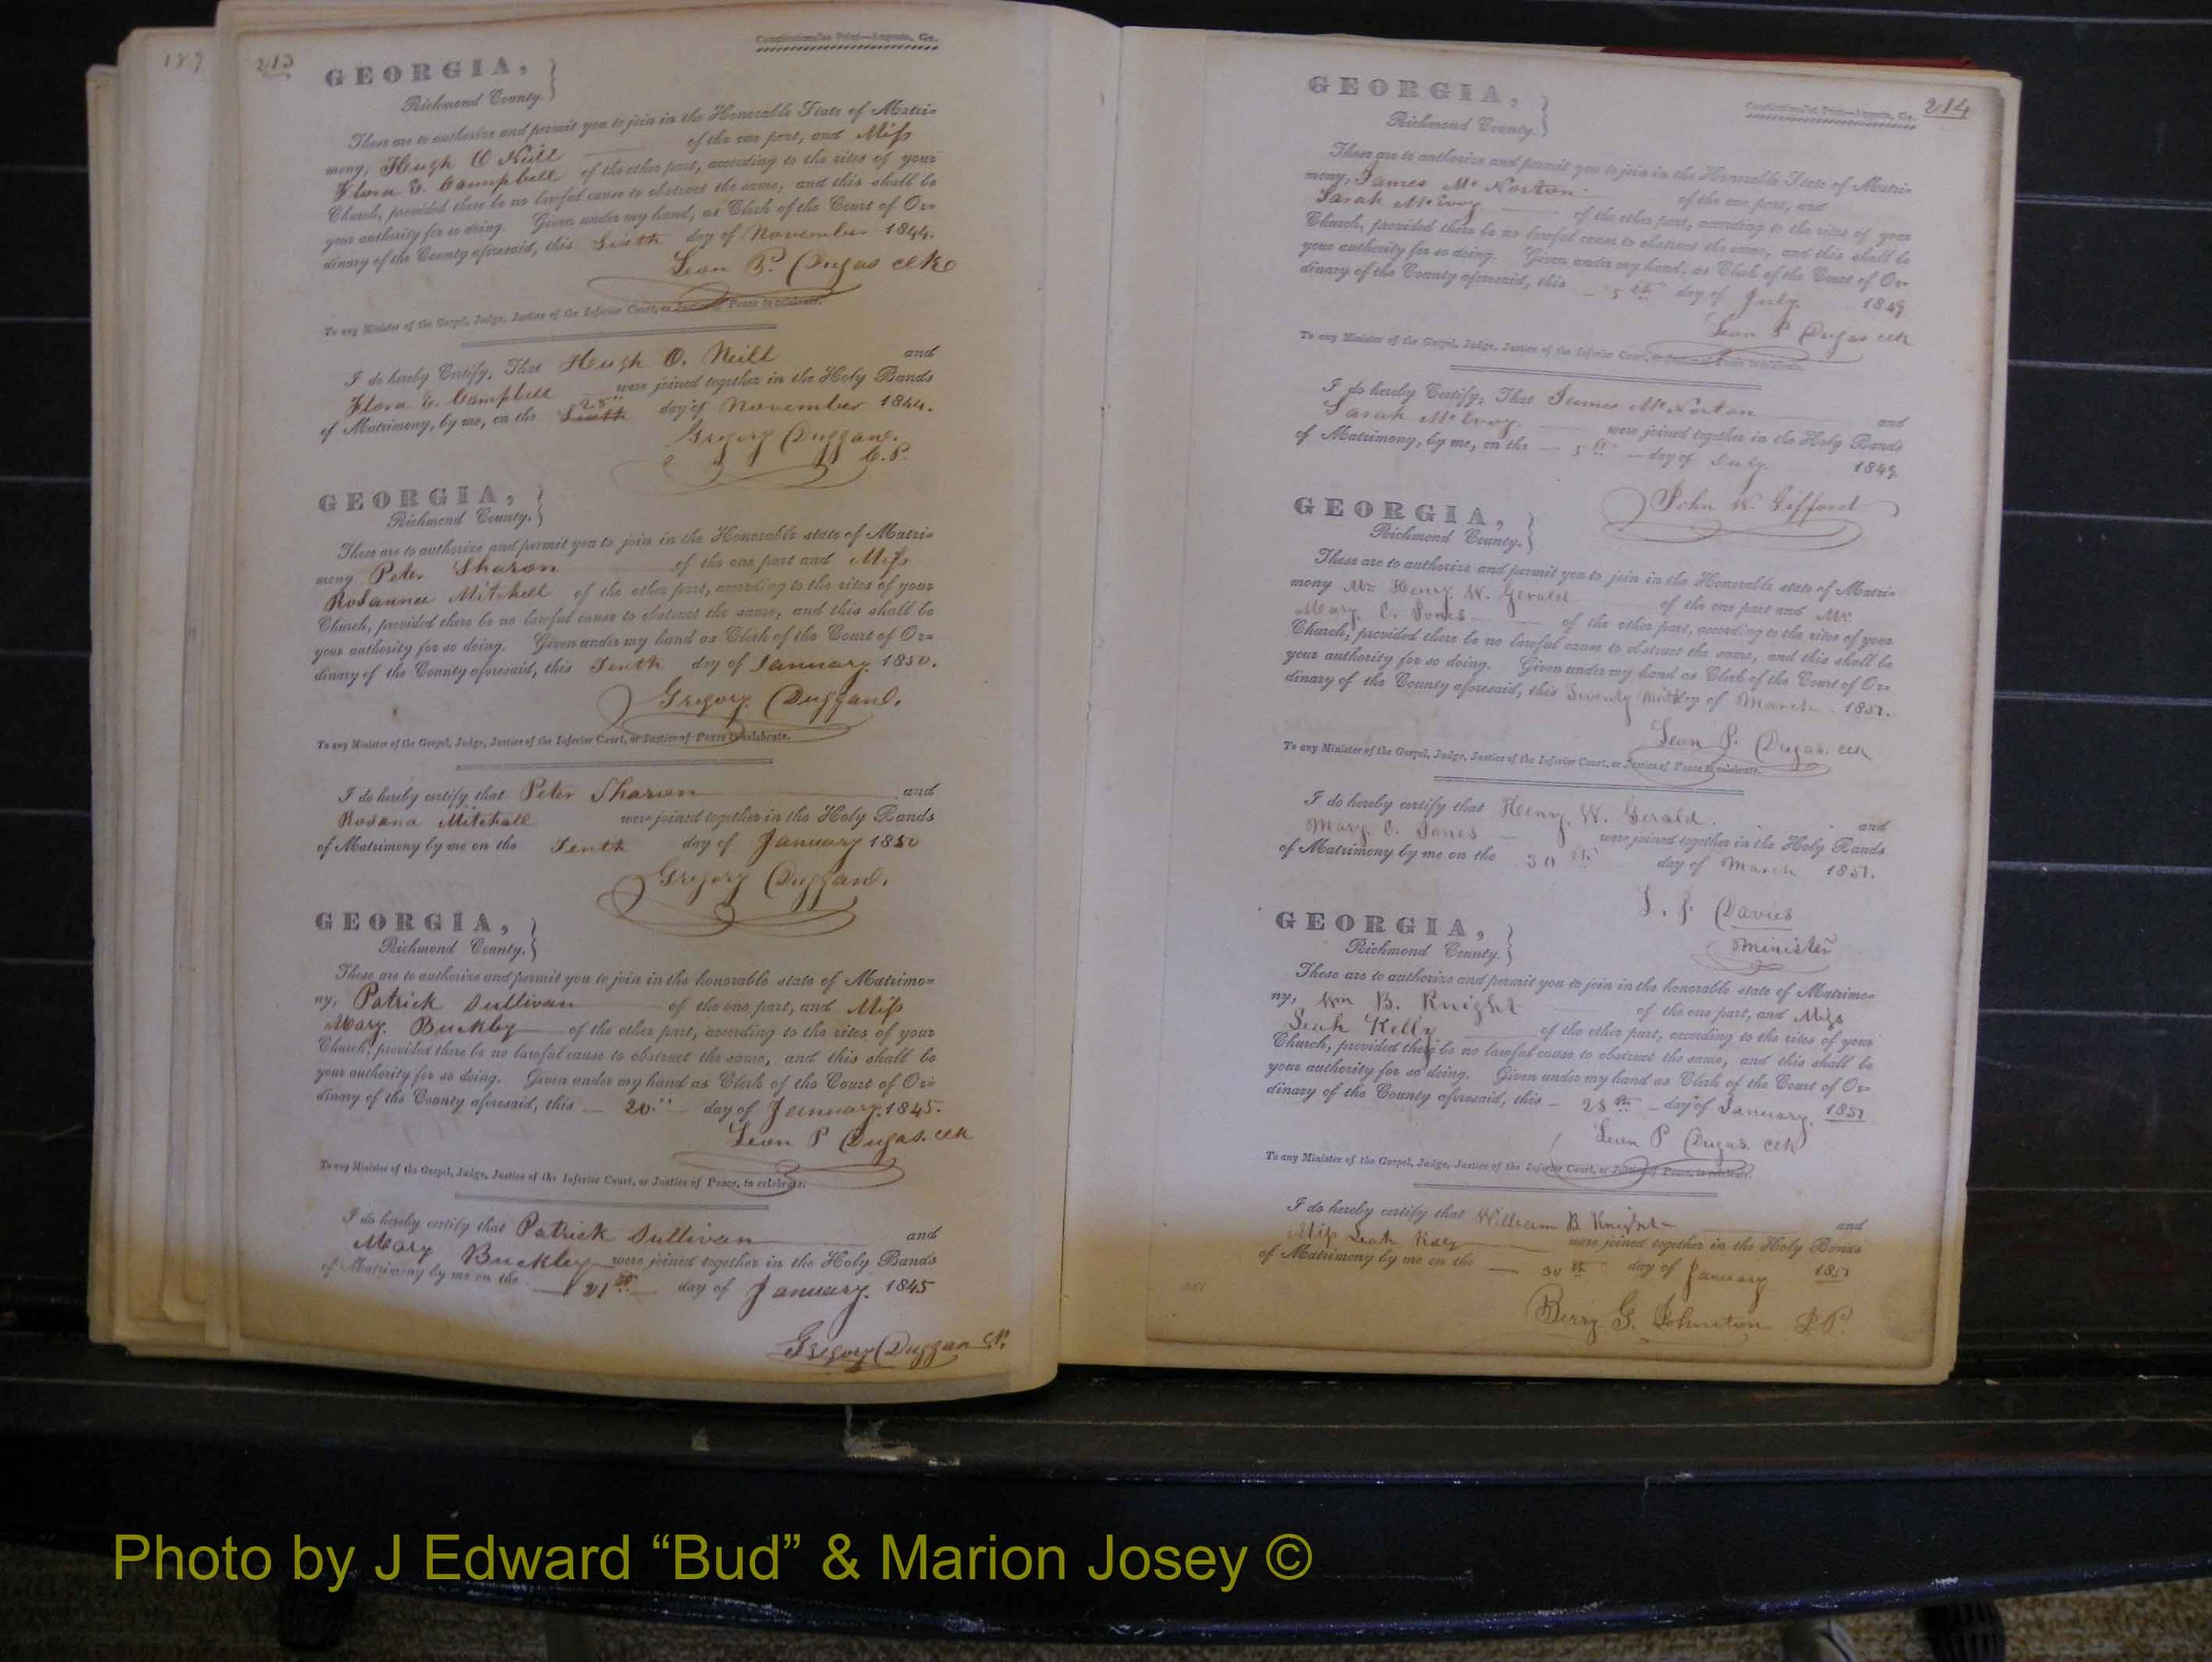 189
213
Constitutionalist Print—Augusta, Ga.
GEORGIA,
Richmond County.
These are to authorize and permit you to join in the Honorable State of Matri-
mony, Hugh O Neill of the one part, and Miss
Flora E. Campbell of the other part, according to the rites of your
Church, provided there be no lawful cause to obstruct the same, and this shall be
your authority for so doing. Given under my hand, as Clerk of the Court of Or-
dinary of the County aforesaid, this Sixth day of November 1844.
Leon P. Dugas clk
To any Minister of the Gospel, Judge, Justice of the Inferior Court, or Justice of Peace to celebrate.
I do hereby Certify, That Hugh O. Neill and
Flora E. Campbell were joined together in the Holy Bands
of Matrimony, by me, on the Sixth 28" day of November 1844.
Gregory Duggan.
C.P.
GEORGIA,
Richmond County.
These are to authorize and permit you to join in the Honorable state of Matri-
mony Peter Sharon of the one part and Miss
Rosannea Mitchell of the other part, according to the rites of your
Church, provided there be no lawful cause to obstruct the same, and this shall be
your authority for so doing. Given under my hand as Clerk of the Court of Or-
dinary of the County aforesaid, this Tenth day of January 1850.
Gregory Duggand.
To any Minister of the Gospel, Judge, Justice of the Inferior Court, or Justice of Peace to celebrate.
I do hereby certify that Peter Sharon and
Rosana Mitchall were joined together in the Holy Bands
of Matrimony by me on the Tenth day of January 1850
Gregory Duggand.
GEORGIA,
Richmond County.
These are to authorize and permit you to join in the honorable state of Matrimo-
ny, Patrick Sullivan of the one part, and Miss
Mary Buckley of the other part, according to the rites of your
Church, provided there be no lawful cause to obstruct the same, and this shall be
your authority for so doing. Given under my hand as Clerk of the Court of Or-
dinary of the County aforesaid, this 20." day of January. 1845.
Leon P Dugas. clk
To any Minister of the Gospel, Judge, Justice of the Inferior Court, or Justice of Peace, to celebrate.
I do hereby certify that Patrick Sullivan and
Mary Buckley were joined together in the Holy Bands
of Matrimony by me on the 21st day of January. 1845
Gregory Duggan
214
Constitutionalist Print—Augusta, Ga.
GEORGIA,
Richmond County.
These are to authorize and permit you to join in the Honorable State of Matri-
mony, James McNorton of the one part, and
Sarah McEvoy of the other part, according to the rites of your
Church, provided there be no lawful cause to obstruct the same, and this shall be
your authority for so doing. Given under my hand, as Clerk of the Court of Or-
dinary of the County aforesaid, this 5th day of July. 1849
Leon P Dugas clk
To any Minister of the Gospel, Judge, Justice of the Inferior Court, or Justice of Peace to celebrate.
I do hereby Certify, That James McNorton and
Sarah McEvoy. were joined together in the Holy Bands
of Matrimony, by me, on the 5th day of July. 1849.
John K. Gifford
GEORGIA,
Richmond County.
These are to authorize and permit you to join in the Honorable state of Matri-
mony Mr Henry W. Gerald of the one part and
Mary. C. Jones of the other part, according to the rites of your
Church, provided there be no lawful cause to obstruct the same, and this shall be
your authority for so doing. Given under my hand as Clerk of the Court of Or-
dinary of the County aforesaid, this day of March 1851.
Leon P. Dugas. clk
To any Minister of the Gospel, Judge, Justice of the Inferior Court, or Justice of Peace to celebrate.
I do hereby certify that Henry. W. Gerald. and
Mary. C. Jones were joined together in the Holy Bands
of Matrimony by me on the 30th day of March 1851.
Davies
Minister
GEORGIA,
Richmond County.
These are to authorize and permit you to join in the honorable state of Matrimo-
ny, Wm B. Knight of the one part, and Miss
Leah Kelly of the other part, according to the rites of your
Church, provided there be no lawful cause to obstruct the same, and this shall be
your authority for so doing. Given under my hand as Clerk of the Court of Or-
dinary of the County aforesaid, this 28th day of January. 1851
Leon P Dugas. clk
To any Minister of the Gospel, Judge, Justice of the Inferior Court, or Justice of Peace, to celebrate.
I do hereby certify that William B Knight and
Miss Leah were joined together in the Holy Bands
of Matrimony by me on the 30th day of January 1851
Berry G. Johnston JP.
Photo by J Edward “Bud” & Marion Josey ©